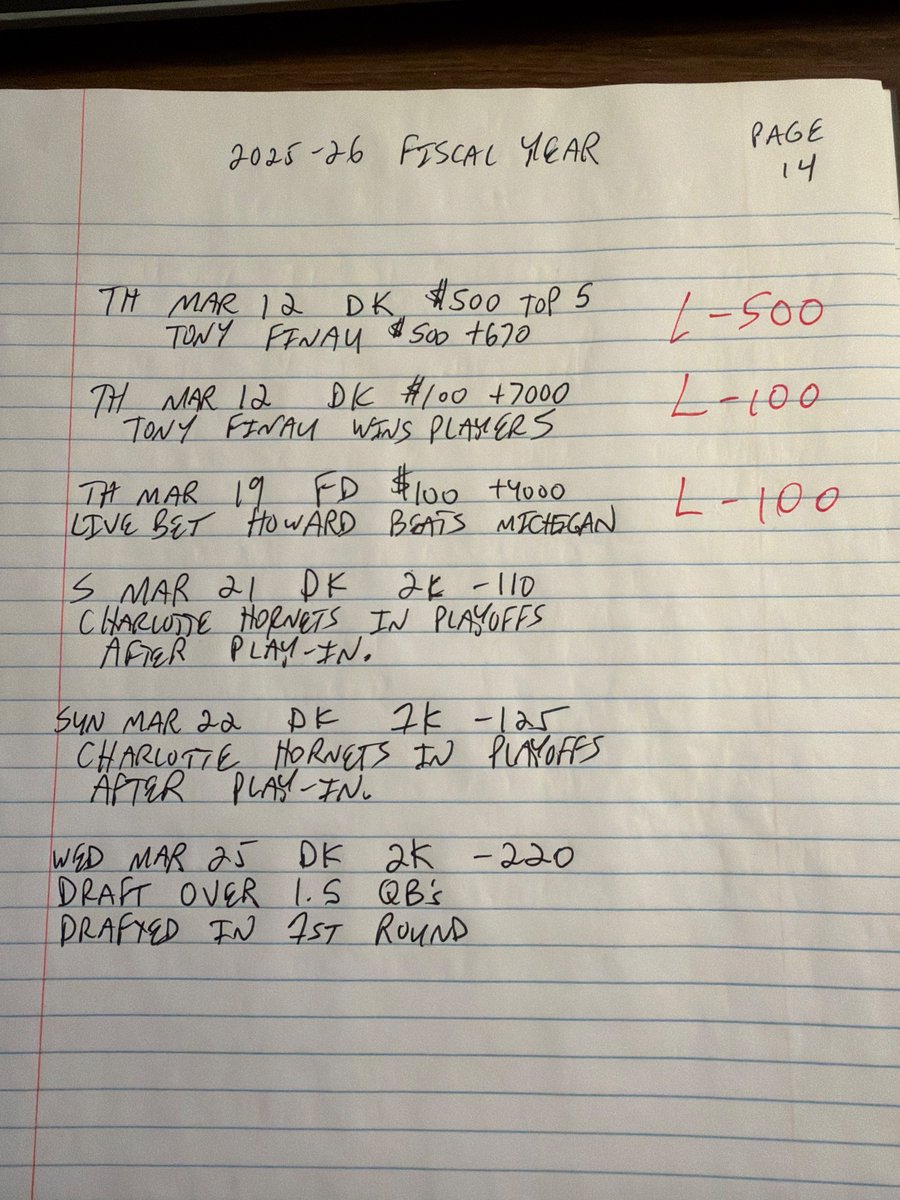 2025-26 FISCAL YEAR PAGE
14
TH MAR 12 DK $500 TOP 5 L-500
TONY FINAU $500 +670
TH MAR 12 DK $100 +7000 L-100
TONY FINAU WINS PLAYERS
TH MAR 19 FD $100 +4000 L-100
LIVE BET HOWARD BEATS MICHIGAN
S MAR 21 DK 2K -110
CHARLOTTE HORNETS IN PLAYOFFS
AFTER PLAY-IN.
SUN MAR 22 DK 1K -125
CHARLOTTE HORNETS IN PLAYOFFS
AFTER PLAY-IN.
WED MAR 25 DK 2K -220
DRAFT OVER 1.5 QB's
DRAFYED IN 1ST ROUND